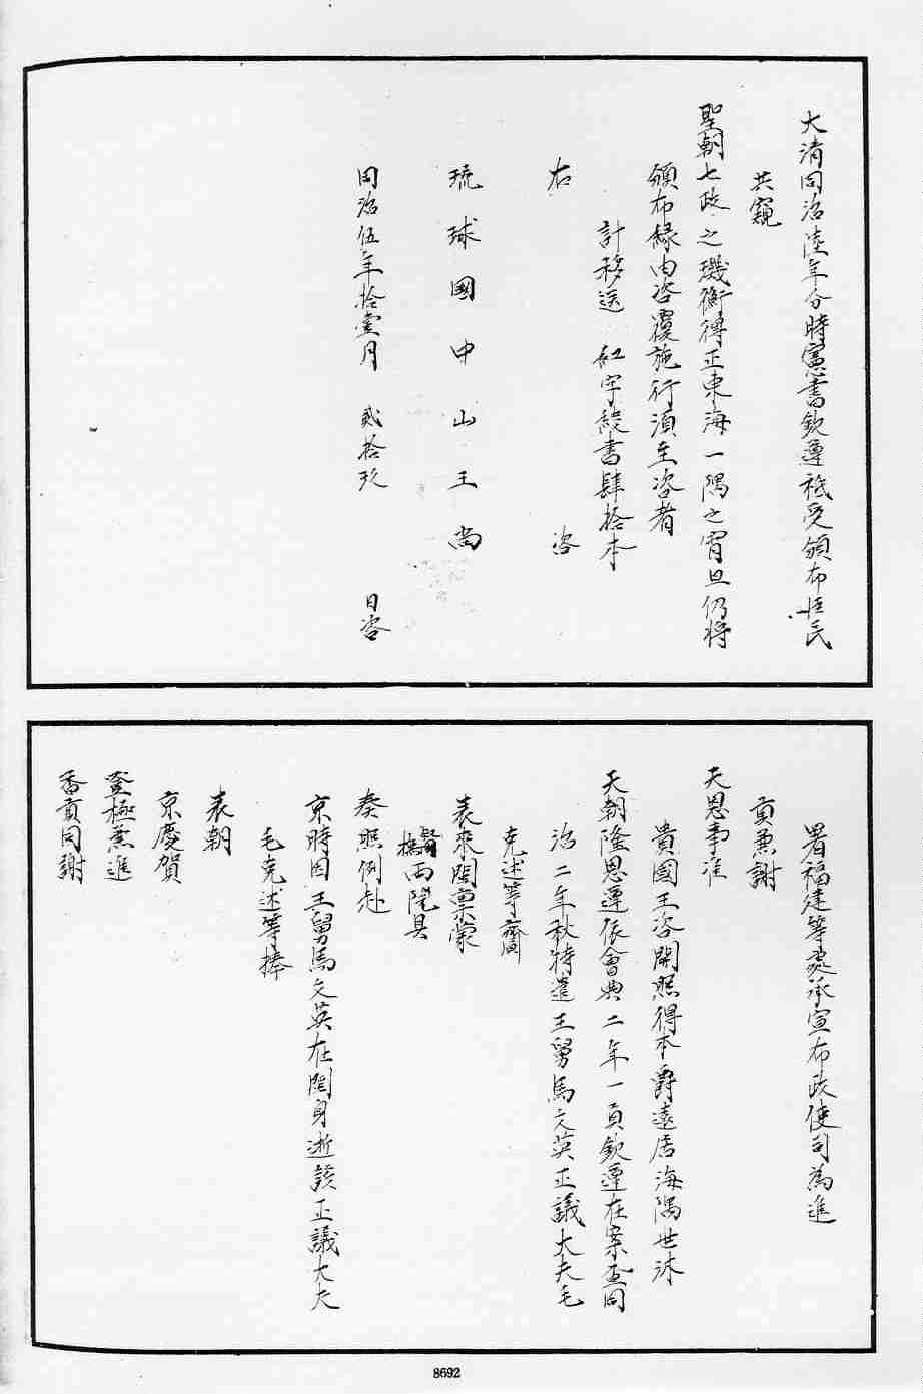 大清同治陸年分時憲書欽遵祗受頒布臣民
共窺
聖朝七政之璣衡得正東海一隅之宵旦仍將
頒布緣由咨覆施行須至咨者
計移送 紅字綾書肆拾本
右 咨
琉球國中山王尚
同治伍年拾壹月 貳拾玖 日咨
署福建等處承宣布政使司為進
貢兼謝
天恩事准
貴國王咨開照得本爵遠居海隅世沐
天朝隆恩遵依會典二年一貢欽遵在案查同
治二年秋特遣王舅馬文英正議大夫毛
克述等齎
表來閩稟蒙
督撫兩院具
奏照例赴
京時因王舅馬文英在閩身逝該正議大夫
毛克述等捧
表朝
京慶賀
登極兼進
香貢同謝
8692